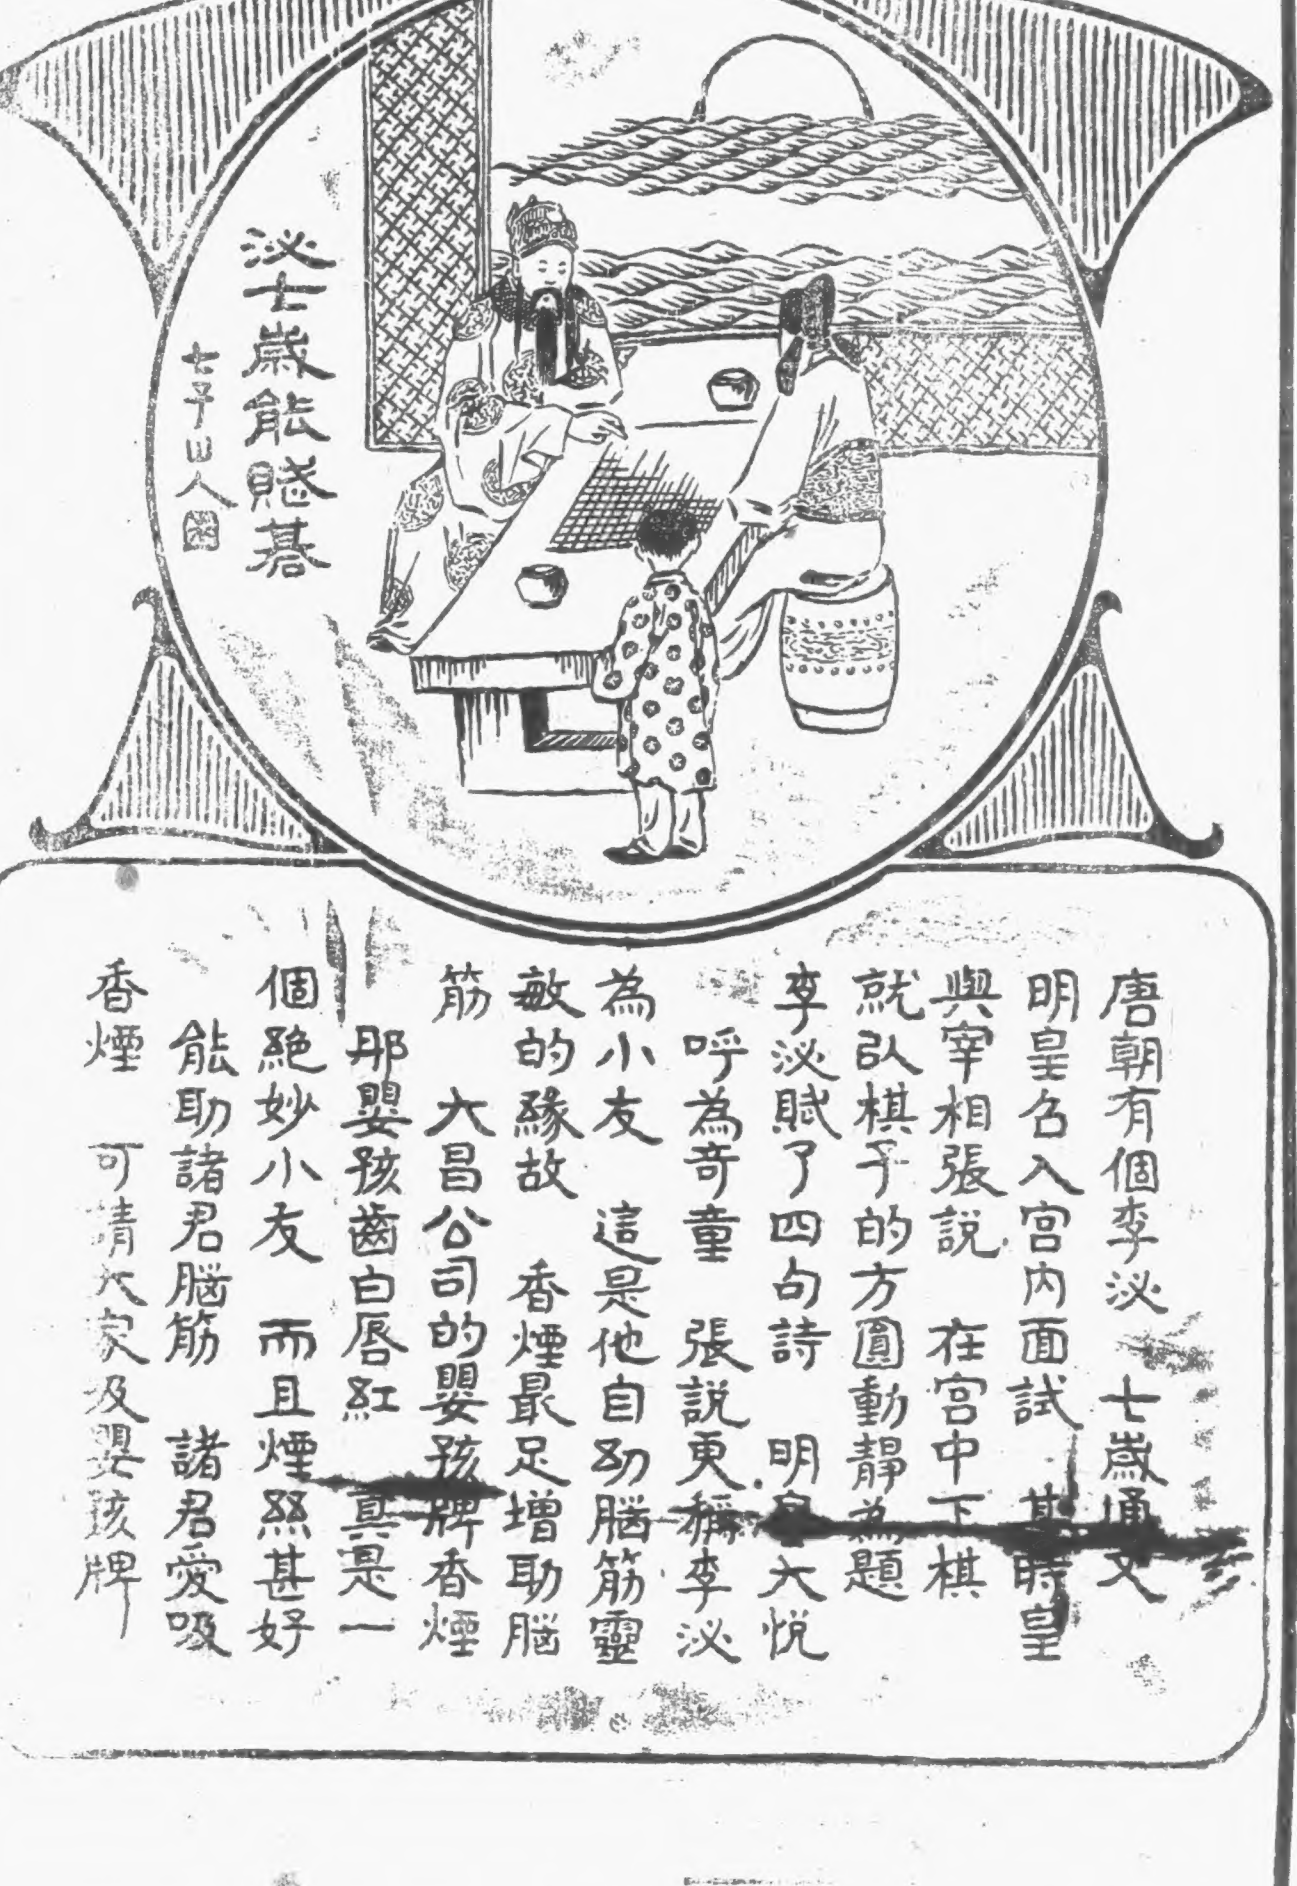 泌士歲能賦棊
七子山人
唐朝有個李泌 七歲通文
明皇召入宮內面試 其時皇
與宰相張説 在宮中下棋
就以棋子的方圓動靜為題
李泌賦了四句詩 明皇大悅
呼為奇童 張説更稱李泌
為小友 這是他自幼腦筋靈
敏的緣故 香煙最足增助腦
筋 大昌公司的嬰孩牌香煙
那嬰孩齒白唇紅 真是一
個絕妙小友 而且煙絲甚好
能助諸君腦筋 諸君愛吸
香煙 可請大家吸嬰孩牌